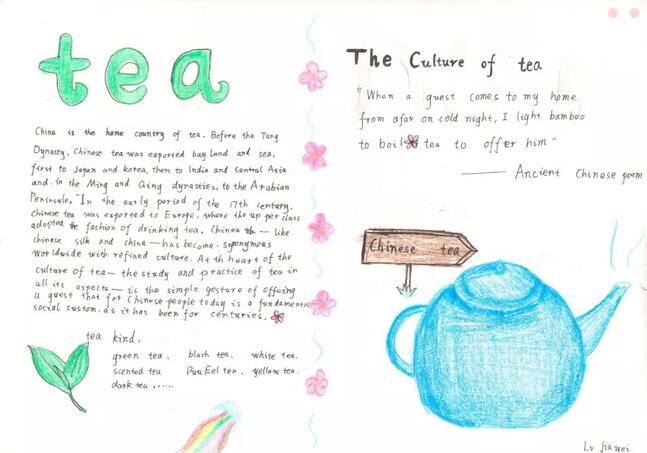 tea
China is the home country of tea. Before the Tang
Dynasty, Chinese tea was exported bay land and sea,
first to Japan and korea, then to India and central Asia
and. in the Ming and Qing dynasties, to the Arabian
Peninsule. "In the early period of the 17th century,
Chinese tea was exported to Europe, where the up per class
adopted the fashion of drinking tea. Chinea — like
chinese silk and china — has become. synonymous
worldwide with refined culture. At th heart of the
culture of tea — the study and practice of tea in
all its aspects — is the simple gesture of offeing
a guest that for Chinese people today is a fundamental
social custom. as it has been for centuries.
tea kind,
green tea. black tea. white tea.
scented tea PuuEel tea. yellow tea.
dark tea ......
The Culture of tea
"When a guest comes to my home
from afar on cold night, I light bamboo
to boil tea to offer him"
—— Ancient Chinese poem
Chinese tea
Lv Jiawei